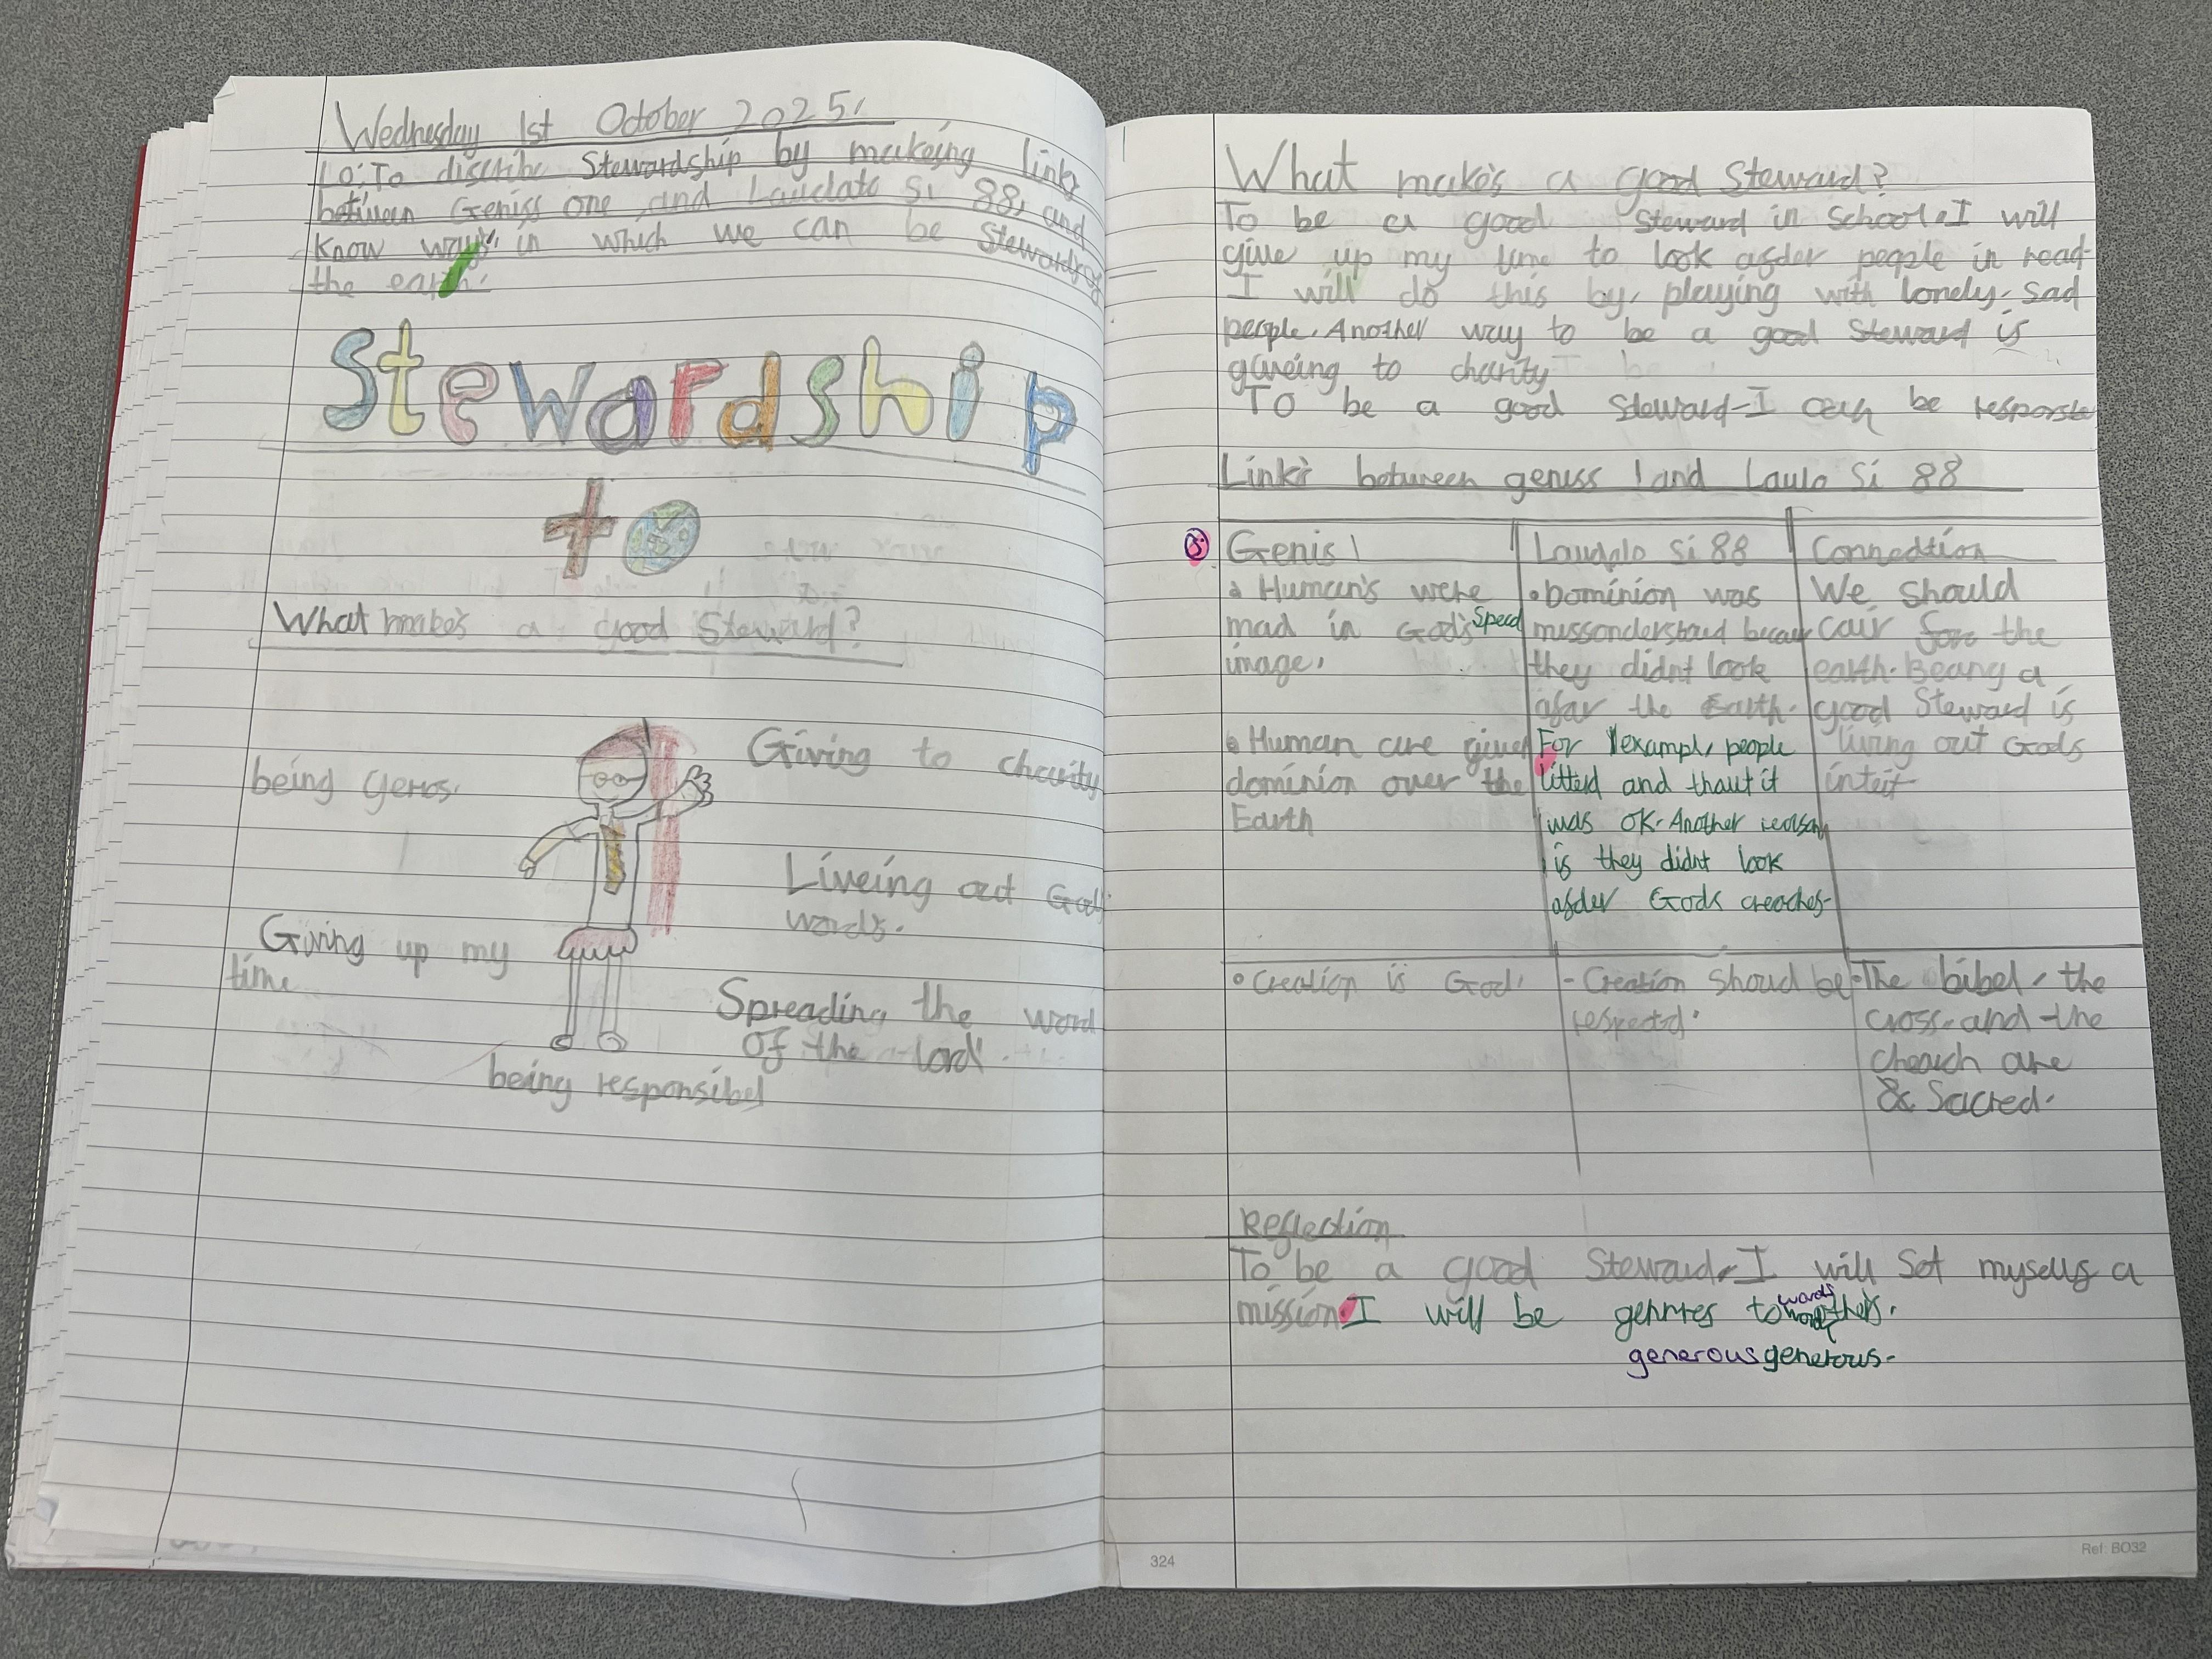 Wednesday 1st October 2025.
LO: To discribe Stewardship by makeing links
between Geniss one and Laudato Si 88, and
know ways in which we can be Stewards of
the earth.
Stewardship
What makes a good Steward?
being genros.
Giving to charity
Liveing out God
words.
Giving up my
time
Spreading the word
of the lord
being responsibel
What makes a good Steward?
To be a good Steward in School. I will
give up my time to look asder people in read
I will do this by, playing with lonely, sad
people. Another way to be a good Steward is
giveing to charity
To be a good Sdeward I can be response
Link's between geniss 1 and Laulo Si 88
Genis 1
Human's were
mad in God's Specd
image.
Human are given
dominion over the
Earth
Laudalo Si 88
Dominion was
missonderstand becau
they didnt look
afar the Earth.
For example, people
litterd and thaut it
was OK. Another reason
is they didnt look
asder Gods creaches.
Connedtion
We should
cair for the
earth. Beang a
good Steward is
living out Gods
inteit
Creation is God.
- Creation shoud be
respected.
The bibel, the
cross, and the
cheach are
& Sacred.
Reflection
To be a good Steward, I will Set myself a
mission. I will be genrres towards others.
generous generous.
324
Ref: BO32